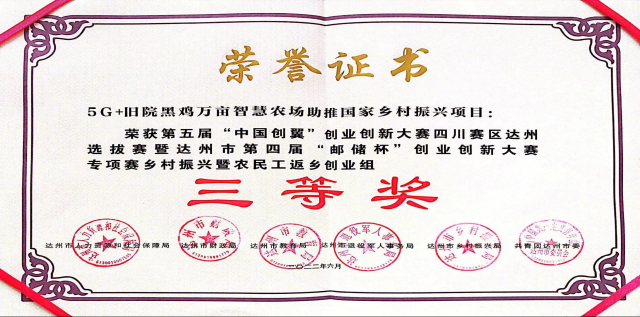 荣誉证书
5G+旧院黑鸡万亩智慧农场助推国家乡村振兴项目：
荣获第五届“中国创翼”创业创新大赛四川赛区达州
选拔赛暨达州市第四届“邮储杯”创业创新大赛
专项赛乡村振兴暨农民工返乡创业组
三等奖
达州市人力资源和社会保障局 达州市财政局 达州市教育局 达州市退役军人事务局 达州市乡村振兴局 共青团达州市委
二〇二二年六月